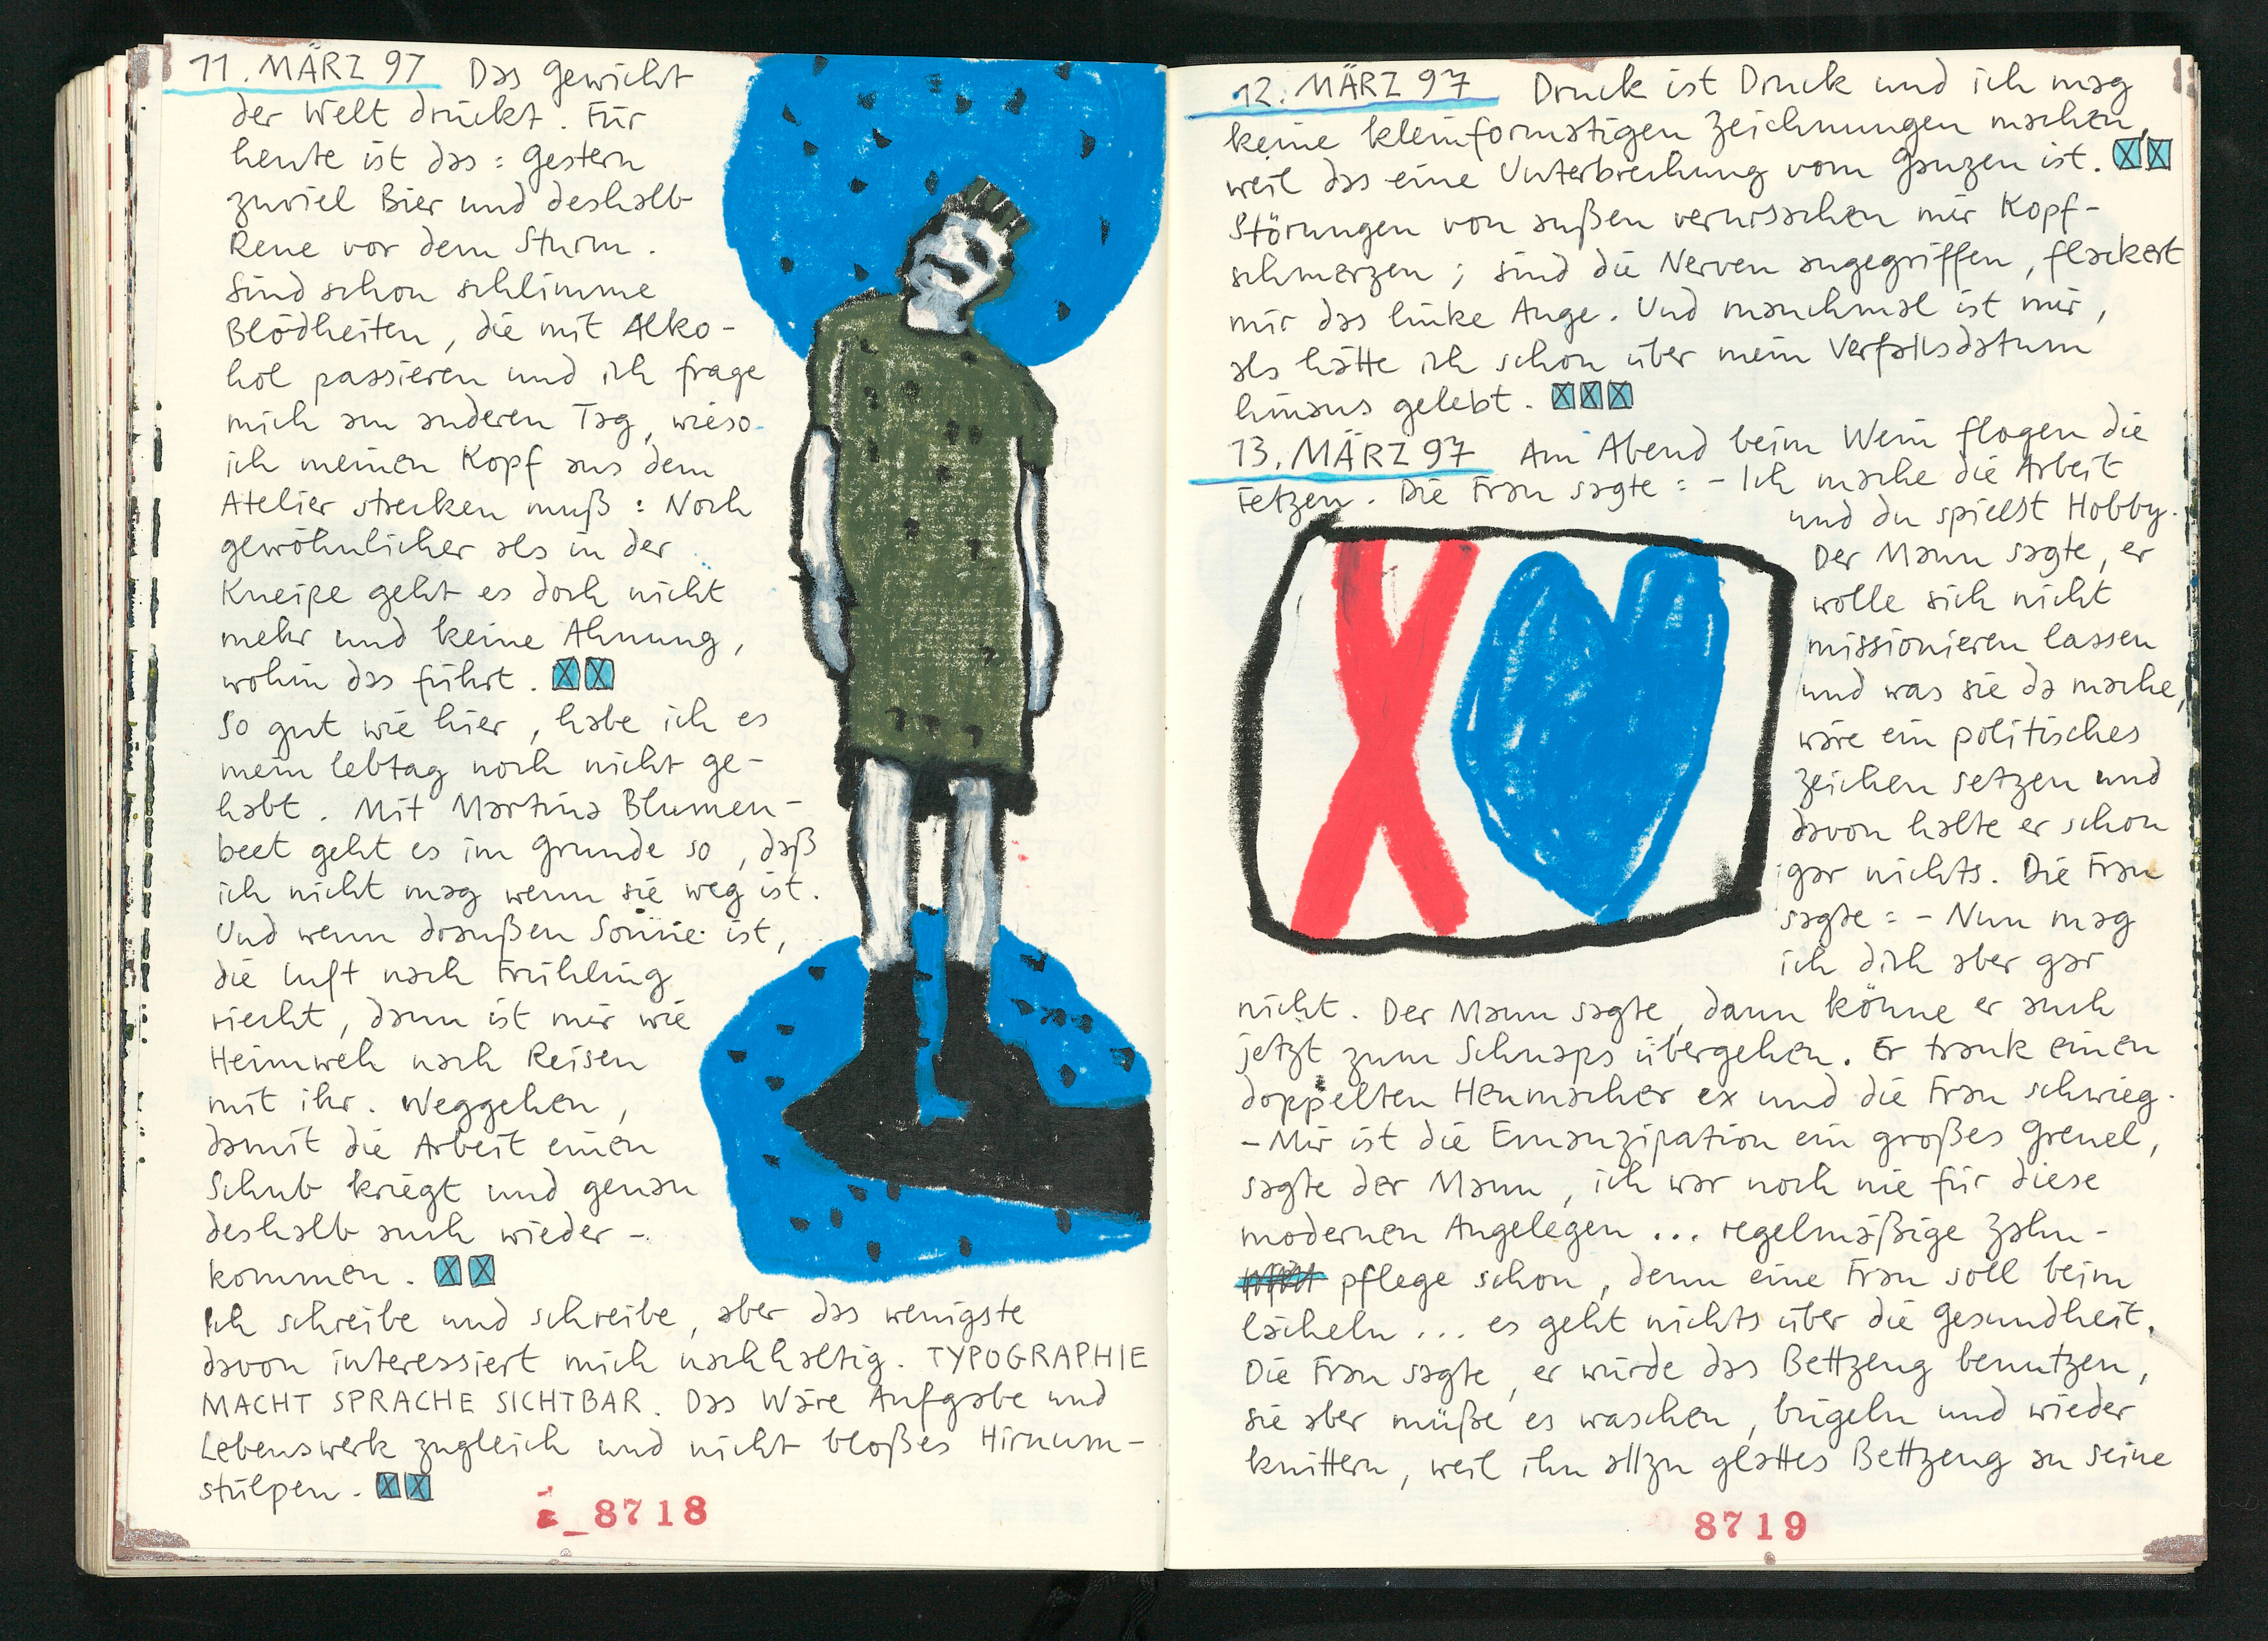 11. MÄRZ 97 Das Gewicht
der Welt drückt. Für
heute ist das: Gestern
zuviel Bier und deshalb
Reue vor dem Sturm.
Sind schon schlimme
Blödheiten, die mit Alko-
hol passieren und ich frage
mich am anderen Tag, wieso
ich meinen Kopf aus dem
Atelier strecken muß: Noch
gewöhnlicher als in der
Kneipe geht es doch nicht
mehr und keine Ahnung,
wohin das führt.
So gut wie hier, habe ich es
mein Lebtag noch nicht ge-
habt. Mit Martina Blumen-
beet geht es im Grunde so, daß
ich nicht mag wenn sie weg ist.
Und wenn draußen Sonne ist,
die Luft nach Frühling
riecht, dann ist mir wie
Heimweh nach Reisen
mit ihr. Weggehen,
damit die Arbeit einen
Schub kriegt und genau
deshalb auch wieder-
kommen.
Ich schreibe und schreibe, aber das wenigste
davon interessiert mich nachhaltig. TYPOGRAPHIE
MACHT SPRACHE SICHTBAR. Das Wäre Aufgabe und
Lebenswerk zugleich und nicht bloßes Hirnum-
stülpen.
8718
12. MÄRZ 97 Druck ist Druck und ich mag
keine kleinformatigen Zeichnungen machen,
weil das eine Unterbrechung vom Ganzen ist.
Störungen von außen verursachen mir Kopf-
schmerzen; sind die Nerven angegriffen, flackert
mir das linke Auge. Und manchmal ist mir,
als hätte ich schon über mein Verfallsdatum
hinaus gelebt.
13. MÄRZ 97 Am Abend beim Wein flogen die
Fetzen. Die Frau sagte: - Ich mache die Arbeit
und du spielst Hobby.
Der Mann sagte, er
wolle sich nicht
missionieren lassen
und was sie da mache,
wäre ein politisches
Zeichen setzen und
davon halte er schon
gar nichts. Die Frau
sagte: - Nun mag
ich dich aber gar
nicht. Der Mann sagte, dann könne er auch
jetzt zum Schnaps übergehen. Er trank einen
doppelten Heumacher ex und die Frau schwieg.
- Mir ist die Emanzipation ein großes Greuel,
sagte der Mann, ich war noch nie für diese
modernen Angelegen ... regelmäßige Zahn-
pflege schon, denn eine Frau soll beim
lächeln ... es geht nichts über die Gesundheit.
Die Frau sagte, er würde das Bettzeug benutzen,
sie aber müße es waschen, bügeln und wieder
knittern, weil ihn allzu glattes Bettzeug an seine
8719